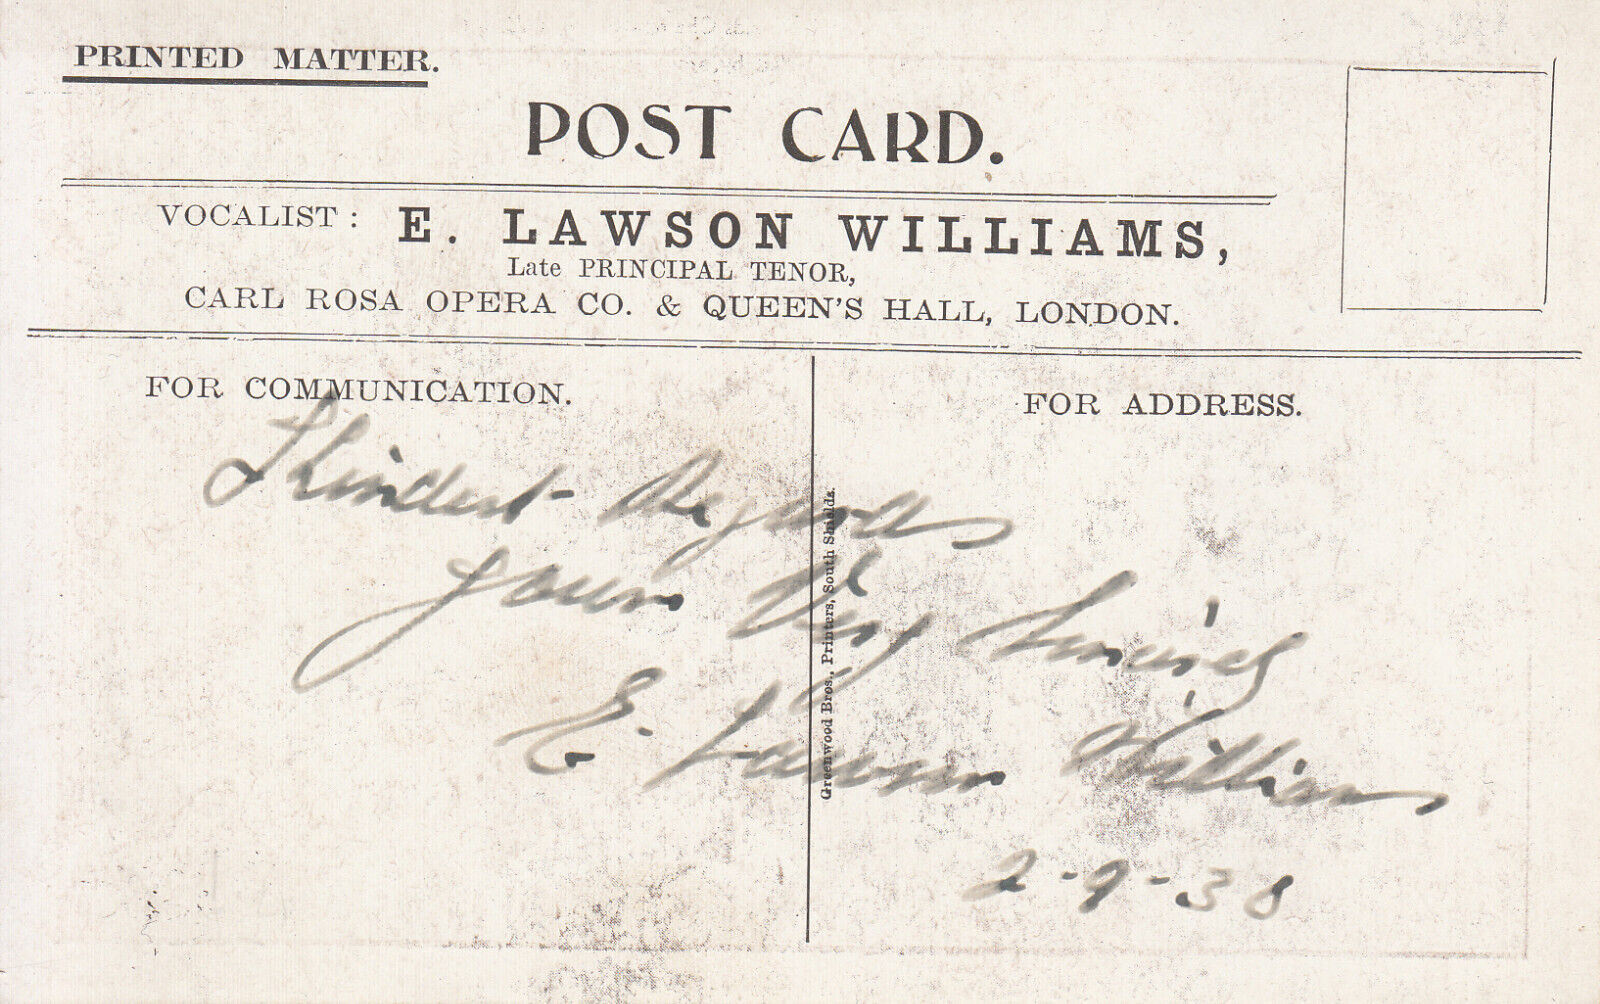 PRINTED MATTER.
POST CARD.
VOCALIST: E. LAWSON WILLIAMS,
Late PRINCIPAL TENOR,
CARL ROSA OPERA CO. & QUEEN'S HALL, LONDON.
FOR COMMUNICATION.
FOR ADDRESS.
Kindest Regards
Yours Very Sincerely
E. Lawson Williams
2-9-38
Greenwood Bros., Printers, South Shields.